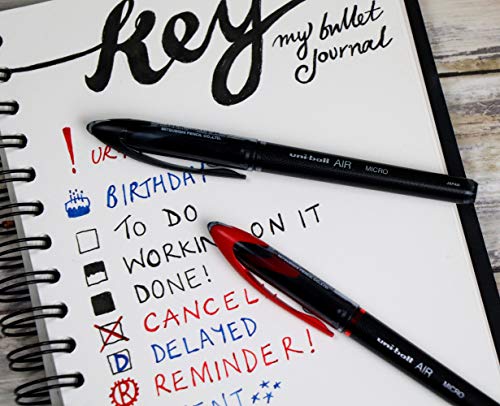 key
my bullet
journal
! UR
BIRTHDAY
TO DO
WORKING ON IT
DONE!
CANCEL
D DELAYED
R REMINDER!
MITSUBISHI PENCIL CO.,LTD.
uni-ball AIR MICRO JAPAN
uni-ball AIR MICRO